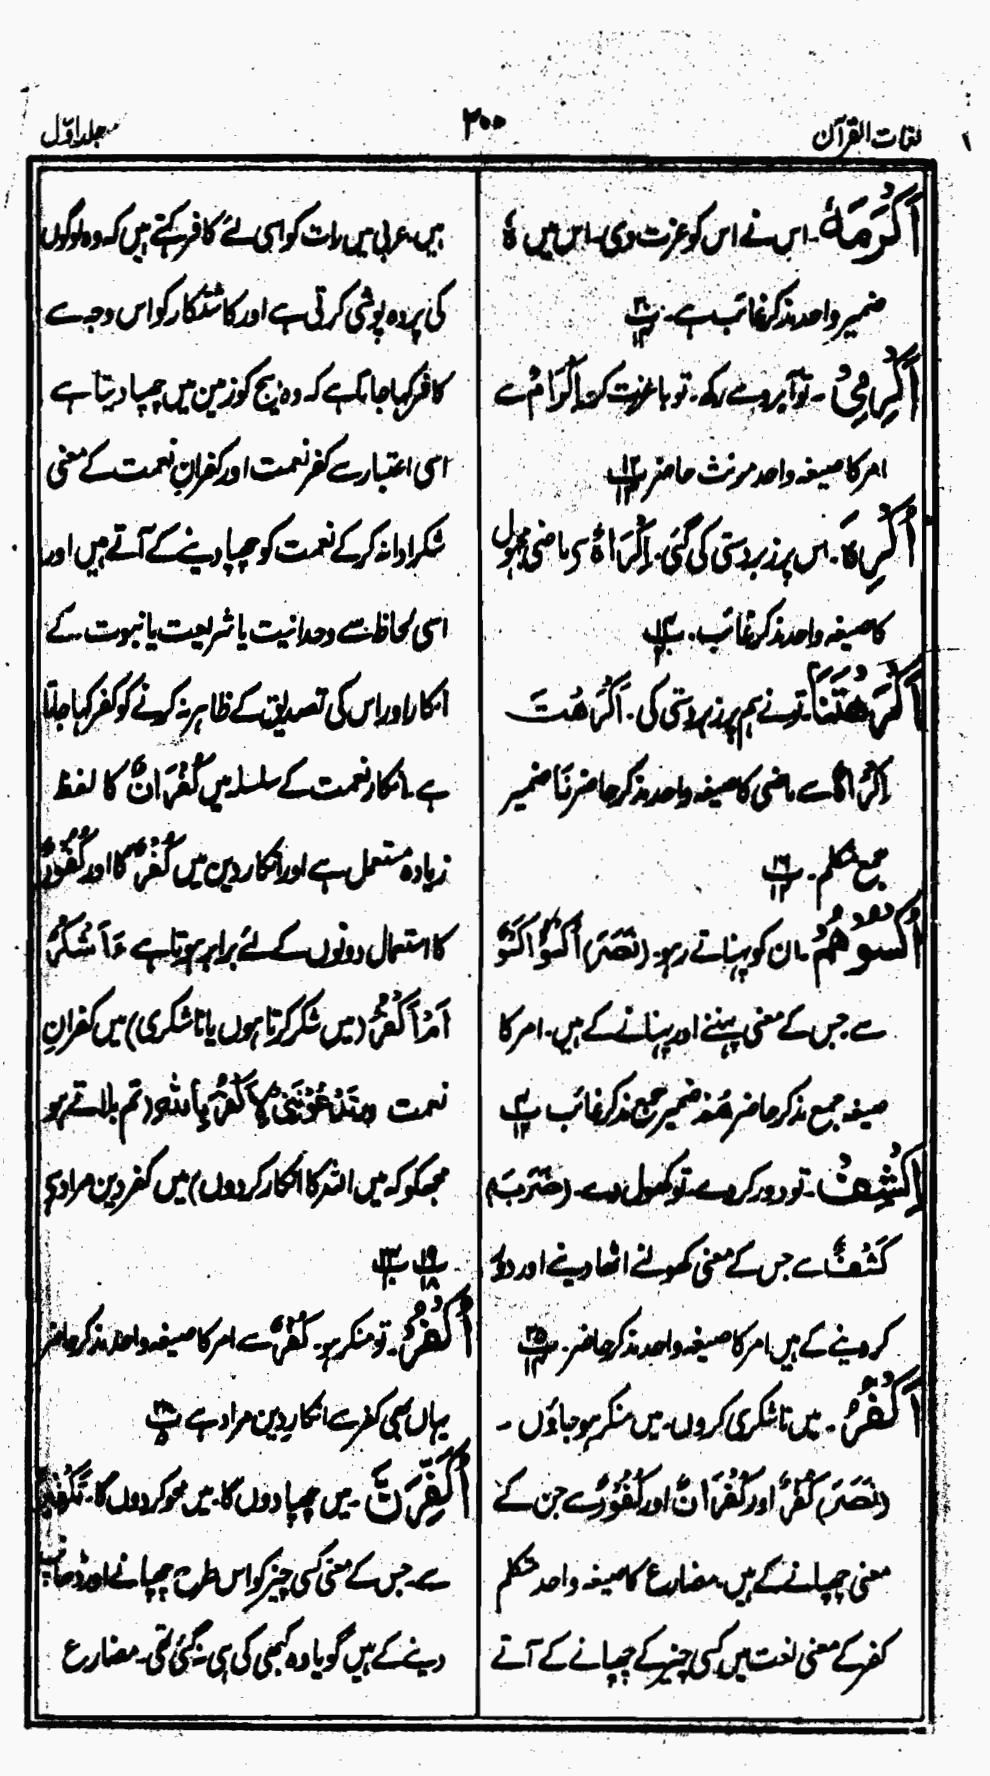 لغات القرآن
۲۰۰
جلد اوّل
اَكْرَمَهٗ۔ اس نے اس کو عزت دی۔ اس میں ہٗ
ضمیر واحد مذکر غائب ہے۔ پ۳۰
اَكْرِمِيْ۔ تو آبرو سے رکھ۔ تو باعزت کر۔ اِكْرَامٌ سے
امر کا صیغہ واحد مونث حاضر پ۱۲
اُكْرِهَ۔ اس پر زبردستی کی گئی۔ اِكْرَاهٌ سے ماضی مجہول
کا صیغہ واحد مذکر غائب۔ پ۱۴
اَكْرَهْتَنَا۔ تو نے ہم پر زبردستی کی۔ اَكْرَهْتَ
اِكْرَاهٌ سے ماضی کا صیغہ واحد مذکر حاضر نَا ضمیر
جمع متکلم۔ پ۱۶
اُكْسُوْهُمْ۔ ان کو پہناتے رہو۔ (نَصَرَ) اَكْسُوْ كَسْوٌ
سے جس کے معنی پہننے اور پہنانے کے ہیں۔ امر کا
صیغہ جمع مذکر حاضر هُمْ ضمیر جمع مذکر غائب پ۴
اِكْشِفْ۔ تو دور کر دے۔ تو کھول دے۔ (ضَرَبَ)
كَشْفٌ سے جس کے معنی کھولنے اٹھا دینے اور دور
کر دینے کے ہیں امر کا صیغہ واحد مذکر حاضر۔ پ۲۵
اَكْفُرُ۔ میں ناشکری کروں۔ میں منکر ہو جاؤں۔
(نَصَرَ) كُفْرٌ اور كُفْرَانٌ اور كُفُوْرٌ سے جن کے
معنی چھپانے کے ہیں۔ مضارع کا صیغہ واحد متکلم
کفر کے معنی لغت میں کسی چیز کے چھپانے کے آتے
ہیں۔ عربی میں رات کو اسی لئے کافر کہتے ہیں کہ وہ لوگوں
کی پردہ پوشی کرتی ہے اور کاشتکار کو اس وجہ سے
کافر کہا جاتا ہے کہ وہ بیج کو زمین میں چھپا دیتا ہے
اسی اعتبار سے کفر نعمت اور کفرانِ نعمت کے معنی
شکر ادا نہ کر کے نعمت کو چھپا دینے کے آتے ہیں اور
اسی لحاظ سے وحدانیت یا شریعت یا نبوت کے
انکار اور اس کی تصدیق کے ظاہر نہ کرنے کو کفر کہا جاتا
ہے۔ انکار نعمت کے سلسلہ میں كُفْرَانٌ کا لفظ
زیادہ مستعمل ہے اور انکار دین میں كُفْرٌ کا اور كُفُوْرٌ
کا استعمال دونوں کے لئے برابر ہوتا ہے ءَاَشْكُرُ
اَمْ اَكْفُرُ (میں شکر کرتا ہوں یا ناشکری) میں کفرانِ
نعمت وَتَدْعُوْنَنِيْ لِاَكْفُرَ بِاللهِ (تم بلاتے ہو
مجھکو کہ میں اللہ کا انکار کر دوں) میں کفر دین مراد ہے
پ۱۹ پ۲۴
اُكْفُرْ۔ تو منکر ہو۔ كُفْرٌ سے امر کا صیغہ واحد مذکر حاضر
یہاں بھی کفر سے انکارِ دین مراد ہے پ۲۸
اُكَفِّرَنَّ۔ میں چھپا دوں گا۔ میں محو کر دوں گا۔ تَكْفِيْرٌ
سے۔ جس کے معنی کسی چیز کو اس طرح چھپانے اور ڈھانپ
دینے کے ہیں گویا وہ کبھی کی ہی نہ گئی تھی۔ مضارع